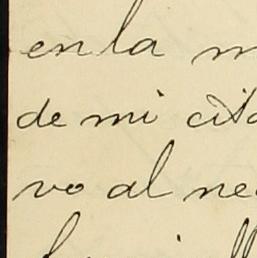 en la m
de mi cita
vo al ne